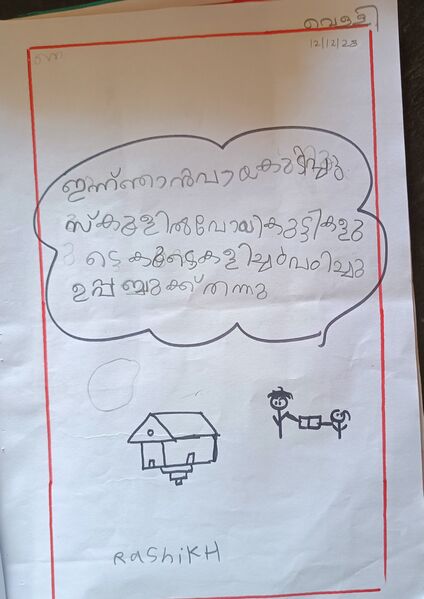 വെള്ളി
12/12/23
ഇന്ന്ഞാൻചായകുടിച്ചു
സ്കൂളിൽപോയികുട്ടികളു
ടെ കൂടെകളിച്ചുപഠിച്ചു
ഉപ്പ ബുക്ക് തന്നു
RaShiKH